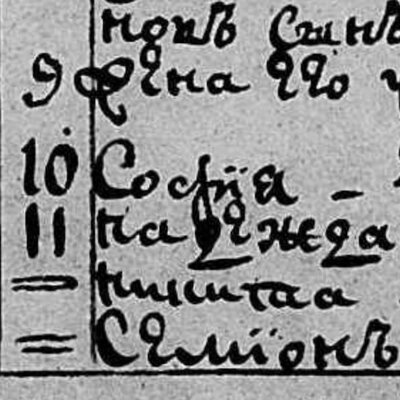 новъ Сынъ
9 Жена его
10 Софiя –
11 надежда
= никитаа
= Семiонъ